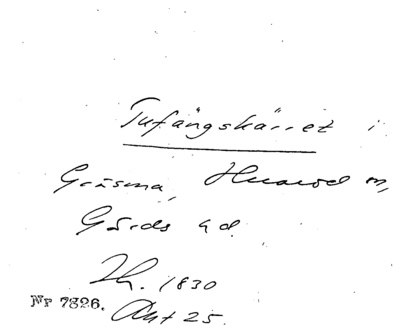 Tufängskärret i
Gräsma, Huarod m,
Gärds hd.
Th. 1830
Nr 7826.
Akt 25.